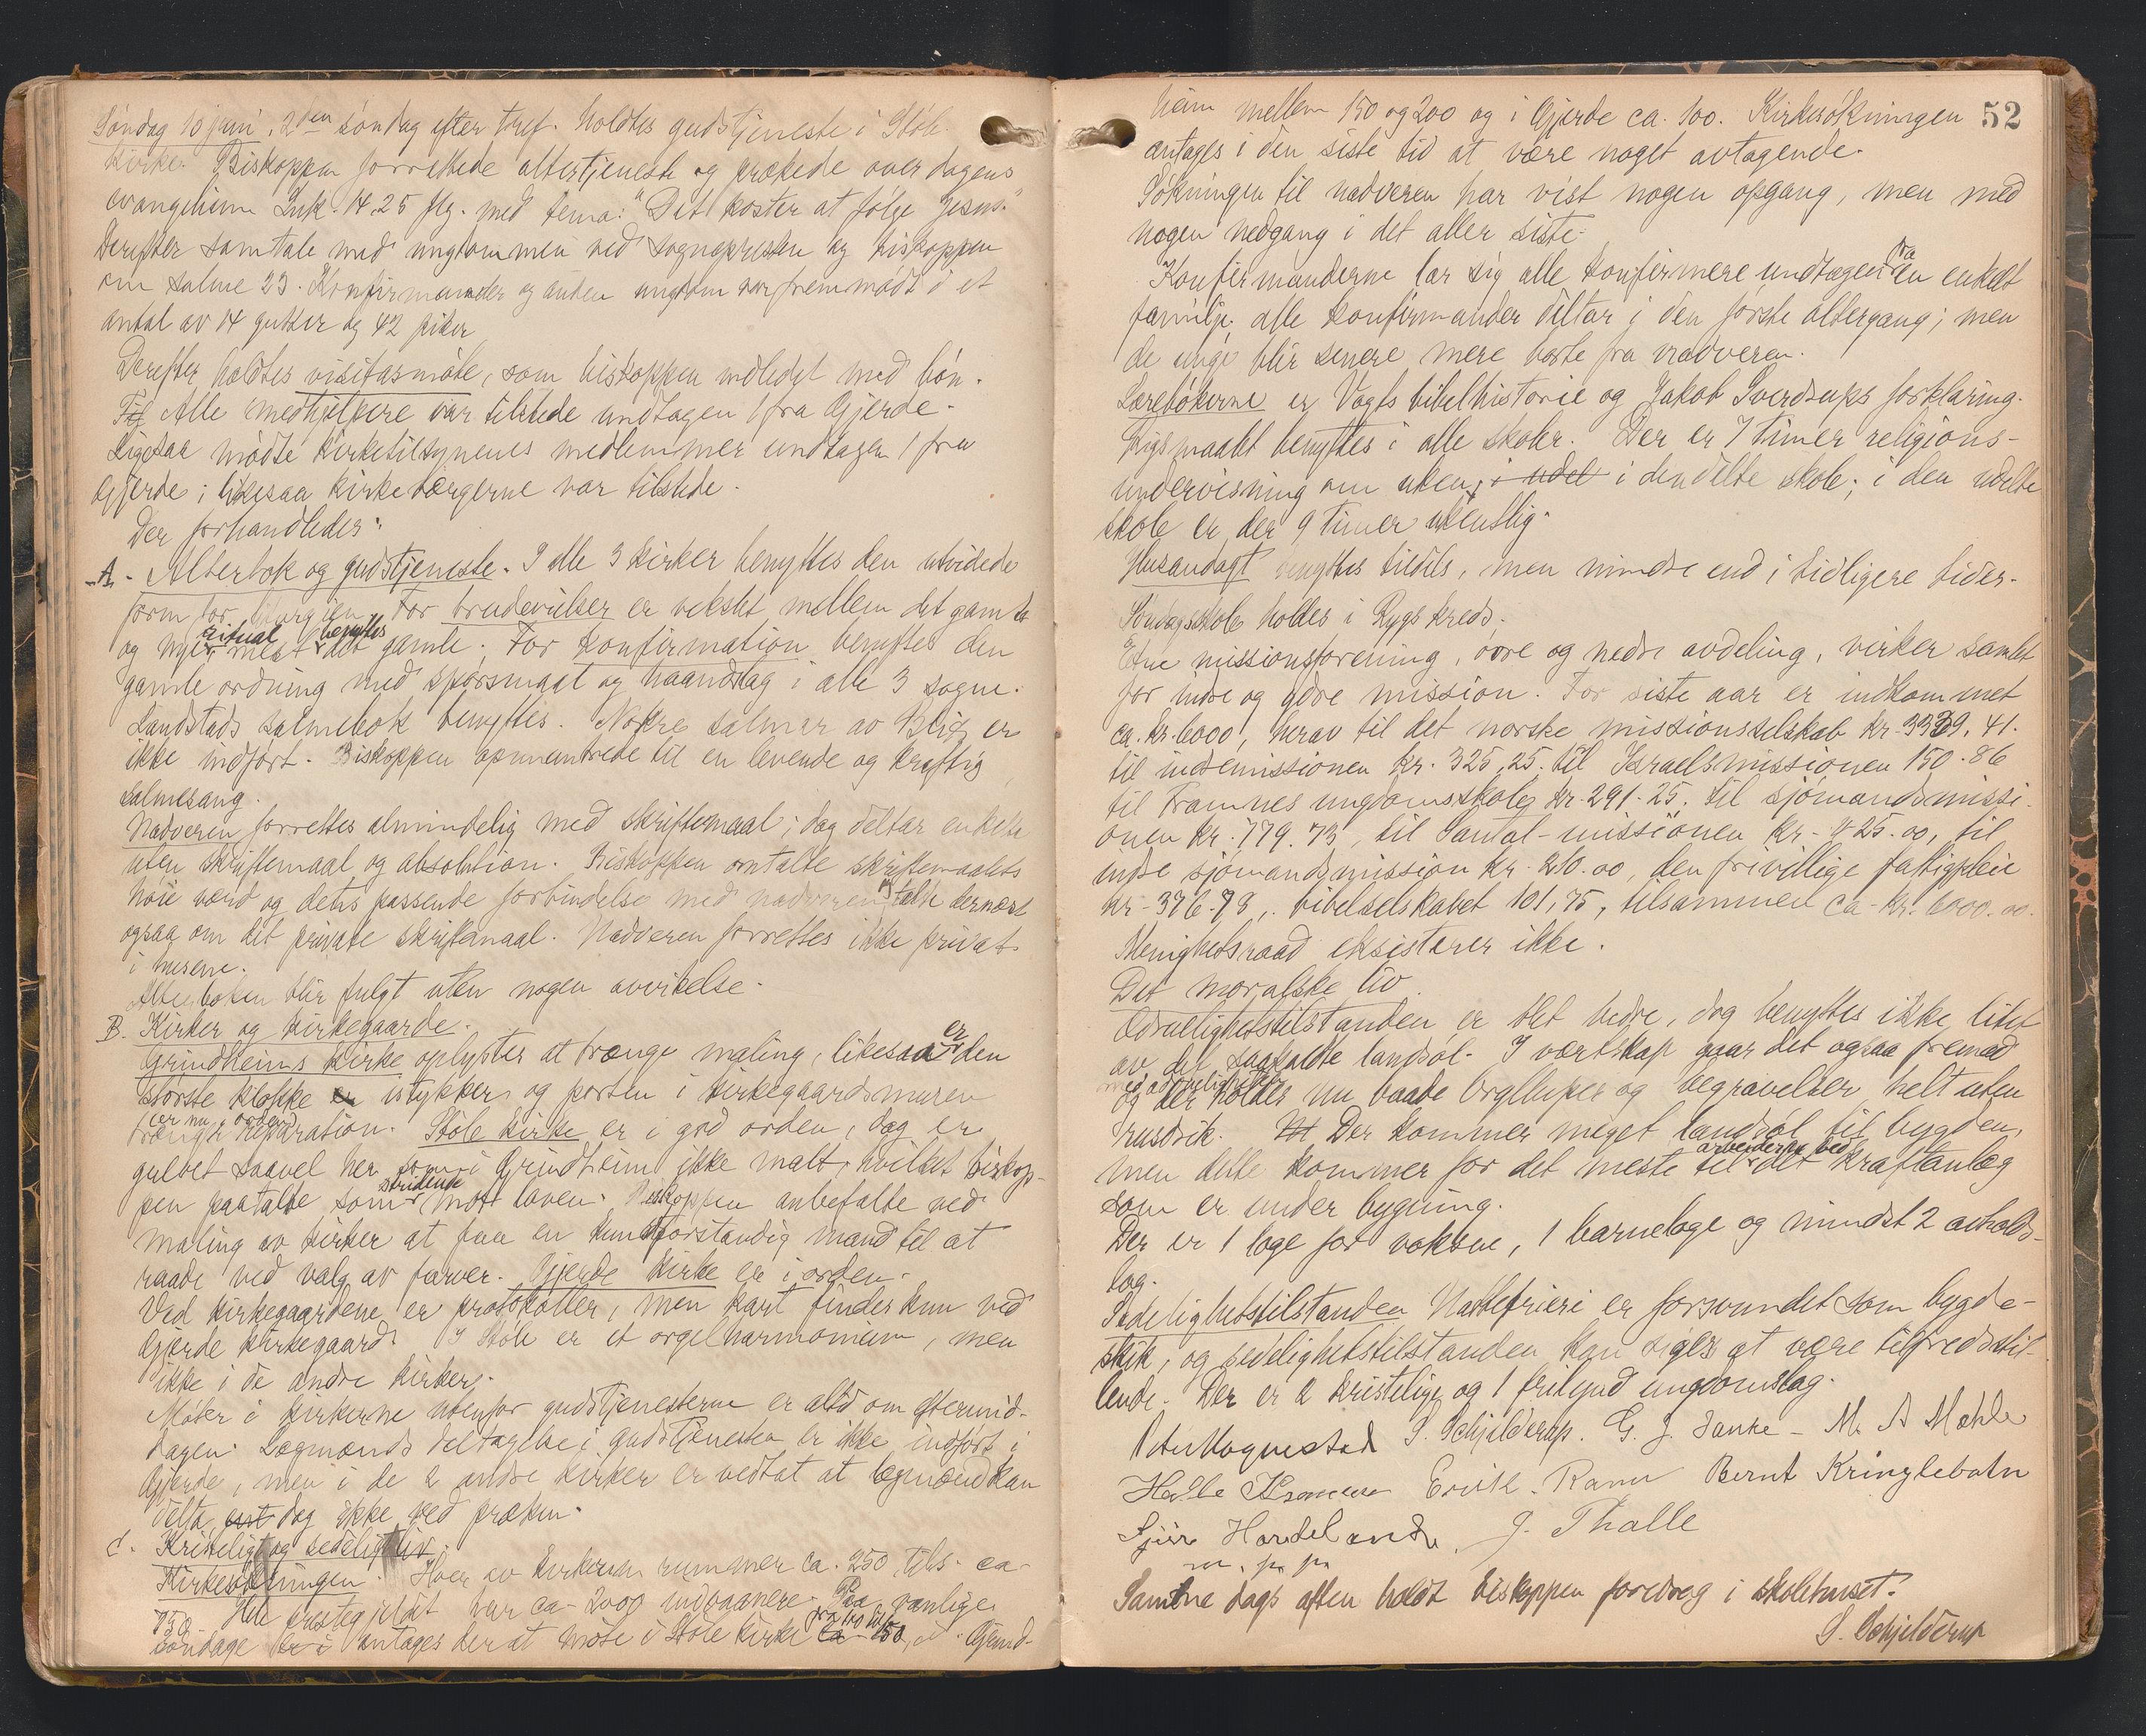 Søndag 10 juni, 2den søndag efter tref. holdtes gudstjeneste i Støle
kirke. Biskoppen forrettede altertjeneste og prækede over dagens
evangelium Luk. 14,25 flg. med tema: "Det koster at følge Jesus."
Derefter samtale med ungdommen ved sognepresten og biskoppen
om salme 23. Konfirmander og anden ungdom var fremmødt i et
antal av 14 gutter og 42 piker
Derefter holdtes visitasmøte, som biskoppen indledet med bøn.
Alle medhjelpere var tilstede undtagen 1 fra Gjerde.
Ligesaa mødte kirketilsynenes medlemmer undtagen 1 fra
Gjerde; likesaa kirkeværgerne var tilstede.
Der forhandledes:
A. Alterbok og gudstjeneste. I alle 3 kirker benyttes den utvidede
form for liturgien. For brudevielser er vekslet mellem det gamle
og nye ritual, mest benyttes det gamle. For konfirmation benyttes den
gamle ordning med spørsmaal og haandslag i alle 3 sogne.
Landstads salmebok benyttes. Nokre salmar av Blix er
ikke indført. Biskoppen opmuntrede til en levende og kraftig
salmesang.
Nadveren forrettes almindelig med skriftemaal; dog deltar enkelte
uten skriftemaal og absolution. Biskoppen omtalte skriftemaalets
høie værd og dets passende forbindelse med nadveren, talte dernæst
ogsaa om det private skriftemaal. Nadveren forrettes ikke privat
i husene.
Alterboken blir fulgt uten nogen avvikelse.
B. Kirker og kirkegaarde.
Grindheims kirke oplystes at trænge maling, likesaa er den
største klokke er istykker og porten i kirkegaardsmuren
trænger reparation. (er nu i orden) Støle kirke er i god orden, dog er
gulvet saavel her som i Grindheim ikke malt, hvilket biskop-
pen paatalte som stridende mot loven. Biskoppen anbefalte ved
maling av kirker at faa en kunstforstandig mand til at
raade ved valg av farver. Gjerde kirke er i orden.
Ved kirkegaardene er protokoller, men kart findes kun ved
Gjerde kirkegaard. I Støle er et orgelharmonium, men
ikke i de andre kirker.
Møter i kirkerne utenfor gudstjenesterne er altid om eftermid-
dagen. Lægmænds deltagelse i gudstjenesten er ikke indført i
Gjerde, men i de 2 andre kirker er vedtat at lægmænd kan
delta, dog ikke ved præken.
C. Kristeligt og sedeligt liv.
Kirkesøkningen. Hver av kirkerne rummer ca. 250, tils. ca.
750. Hele prestegjeldet har ca. 2000 indvaanere. Paa vanlige
søndage antages der at møte i Støle kirke fra 100 til 150, i Grind-
52
heim mellem 150 og 200 og i Gjerde ca. 100. Kirkesøkningen
antages i den siste tid at være noget avtagende.
Søkningen til nadveren har vist nogen opgang, men med
nogen nedgang i det aller siste.
Konfirmanderne lar sig alle konfirmere undtagen fra en enkelt
familje. Alle konfirmander deltar i den første altergang; men
de unge blir senere mere borte fra nadveren.
Lærebøkerne er Vogts bibelhistorie og Jakob Sverdrups forklaring.
Rigsmaalet benyttes i alle skoler. Der er 7 timer religions-
undervisning om uken, i udel i den delte skole; i den udelte
skole er der 9 timer ukentlig.
Husandagt benyttes tildels, men mindre end i tidligere tider.
Søndagsskole holdes i Rygs kreds.
Etne missionsforening, øvre og nedre avdeling, virker samlet
for indre og ydre mission. For siste aar er indkommet
ca. kr. 6000, herav til det norske missionsselskab kr. 3339.41.
til indremissionen kr. 325,25. til Israelsmissionen 150.86
til Framnes ungdomsskole kr. 291.25. til sjømandsmissi-
onen kr. 779.73, til Santal-missionen kr. 425.00, til
indre sjømandsmission kr. 210.00, den frivillige fattigpleie
kr. 376.78, bibelselskabet 101,75, tilsammen ca. kr. 6000.00.
Menighetsraad eksisterer ikke.
Det moralske liv.
Ædruelighetstilstanden er blet bedre, dog benyttes ikke litet
av det saakaldte landsøl. I vertskap gaar det ogsaa fremad
med ædruelighet og der holdes nu baade brylluper og begravelser helt uten
rusdrik. Der kommer meget landsøl til bygden,
men dette kommer for det meste til arbeiderne ved det kraftanlæg
som er under bygning.
Der er 1 loge for voksne, 1 barneloge og mindst 2 avholds-
lag.
Sedelighetstilstanden. Nattefrieri er forsvundet som bygde-
skik, og sedelighetstilstanden kan siges at være tilfredsstil-
lende. Der er 2 kristelige og 1 frilynd ungdomslag.
S. Schjelderup. G. J. Sanke - M. A. Mæhle
Halle Erik. Ramn Bernt Kringlebotn
Sjur Hardeland J. Thalle
Samme dags aften holdt biskoppen foredrag i skolehuset.
S. Schjelderup